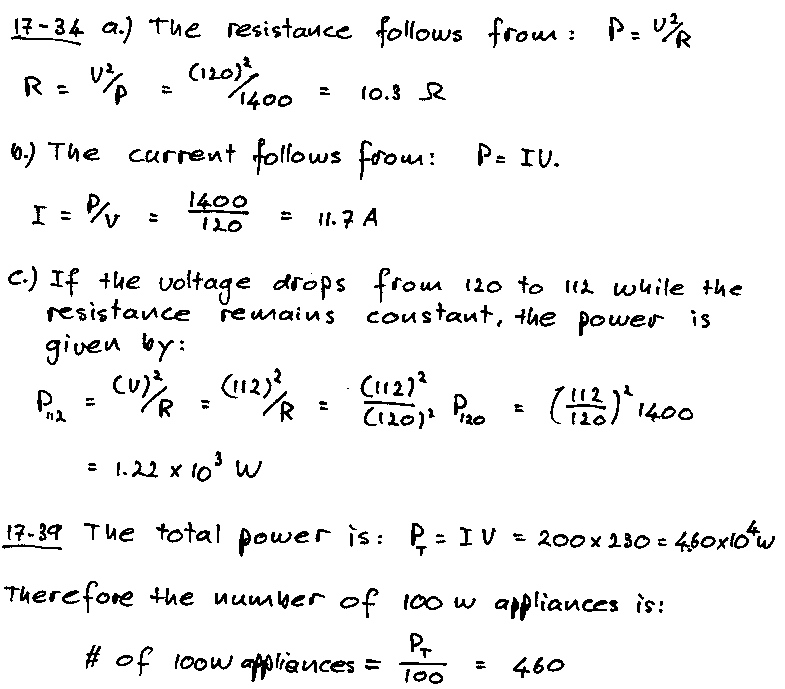 17-34 a.) The resistance follows from: P = V²/R
R = V²/P = (120)²/1400 = 10.3 Ω
b.) The current follows from: P = IV.
I = P/V = 1400/120 = 11.7 A
c.) If the voltage drops from 120 to 112 while the
resistance remains constant, the power is
given by:
P₁₁₂ = (V)²/R = (112)²/R = (112)²/(120)² P₁₂₀ = (112/120)² 1400
= 1.22 x 10³ W
17-39 The total power is: P_T = IV = 200 x 230 = 4.60x10⁴ W
Therefore the number of 100 W appliances is:
# of 100W appliances = P_T/100 = 460